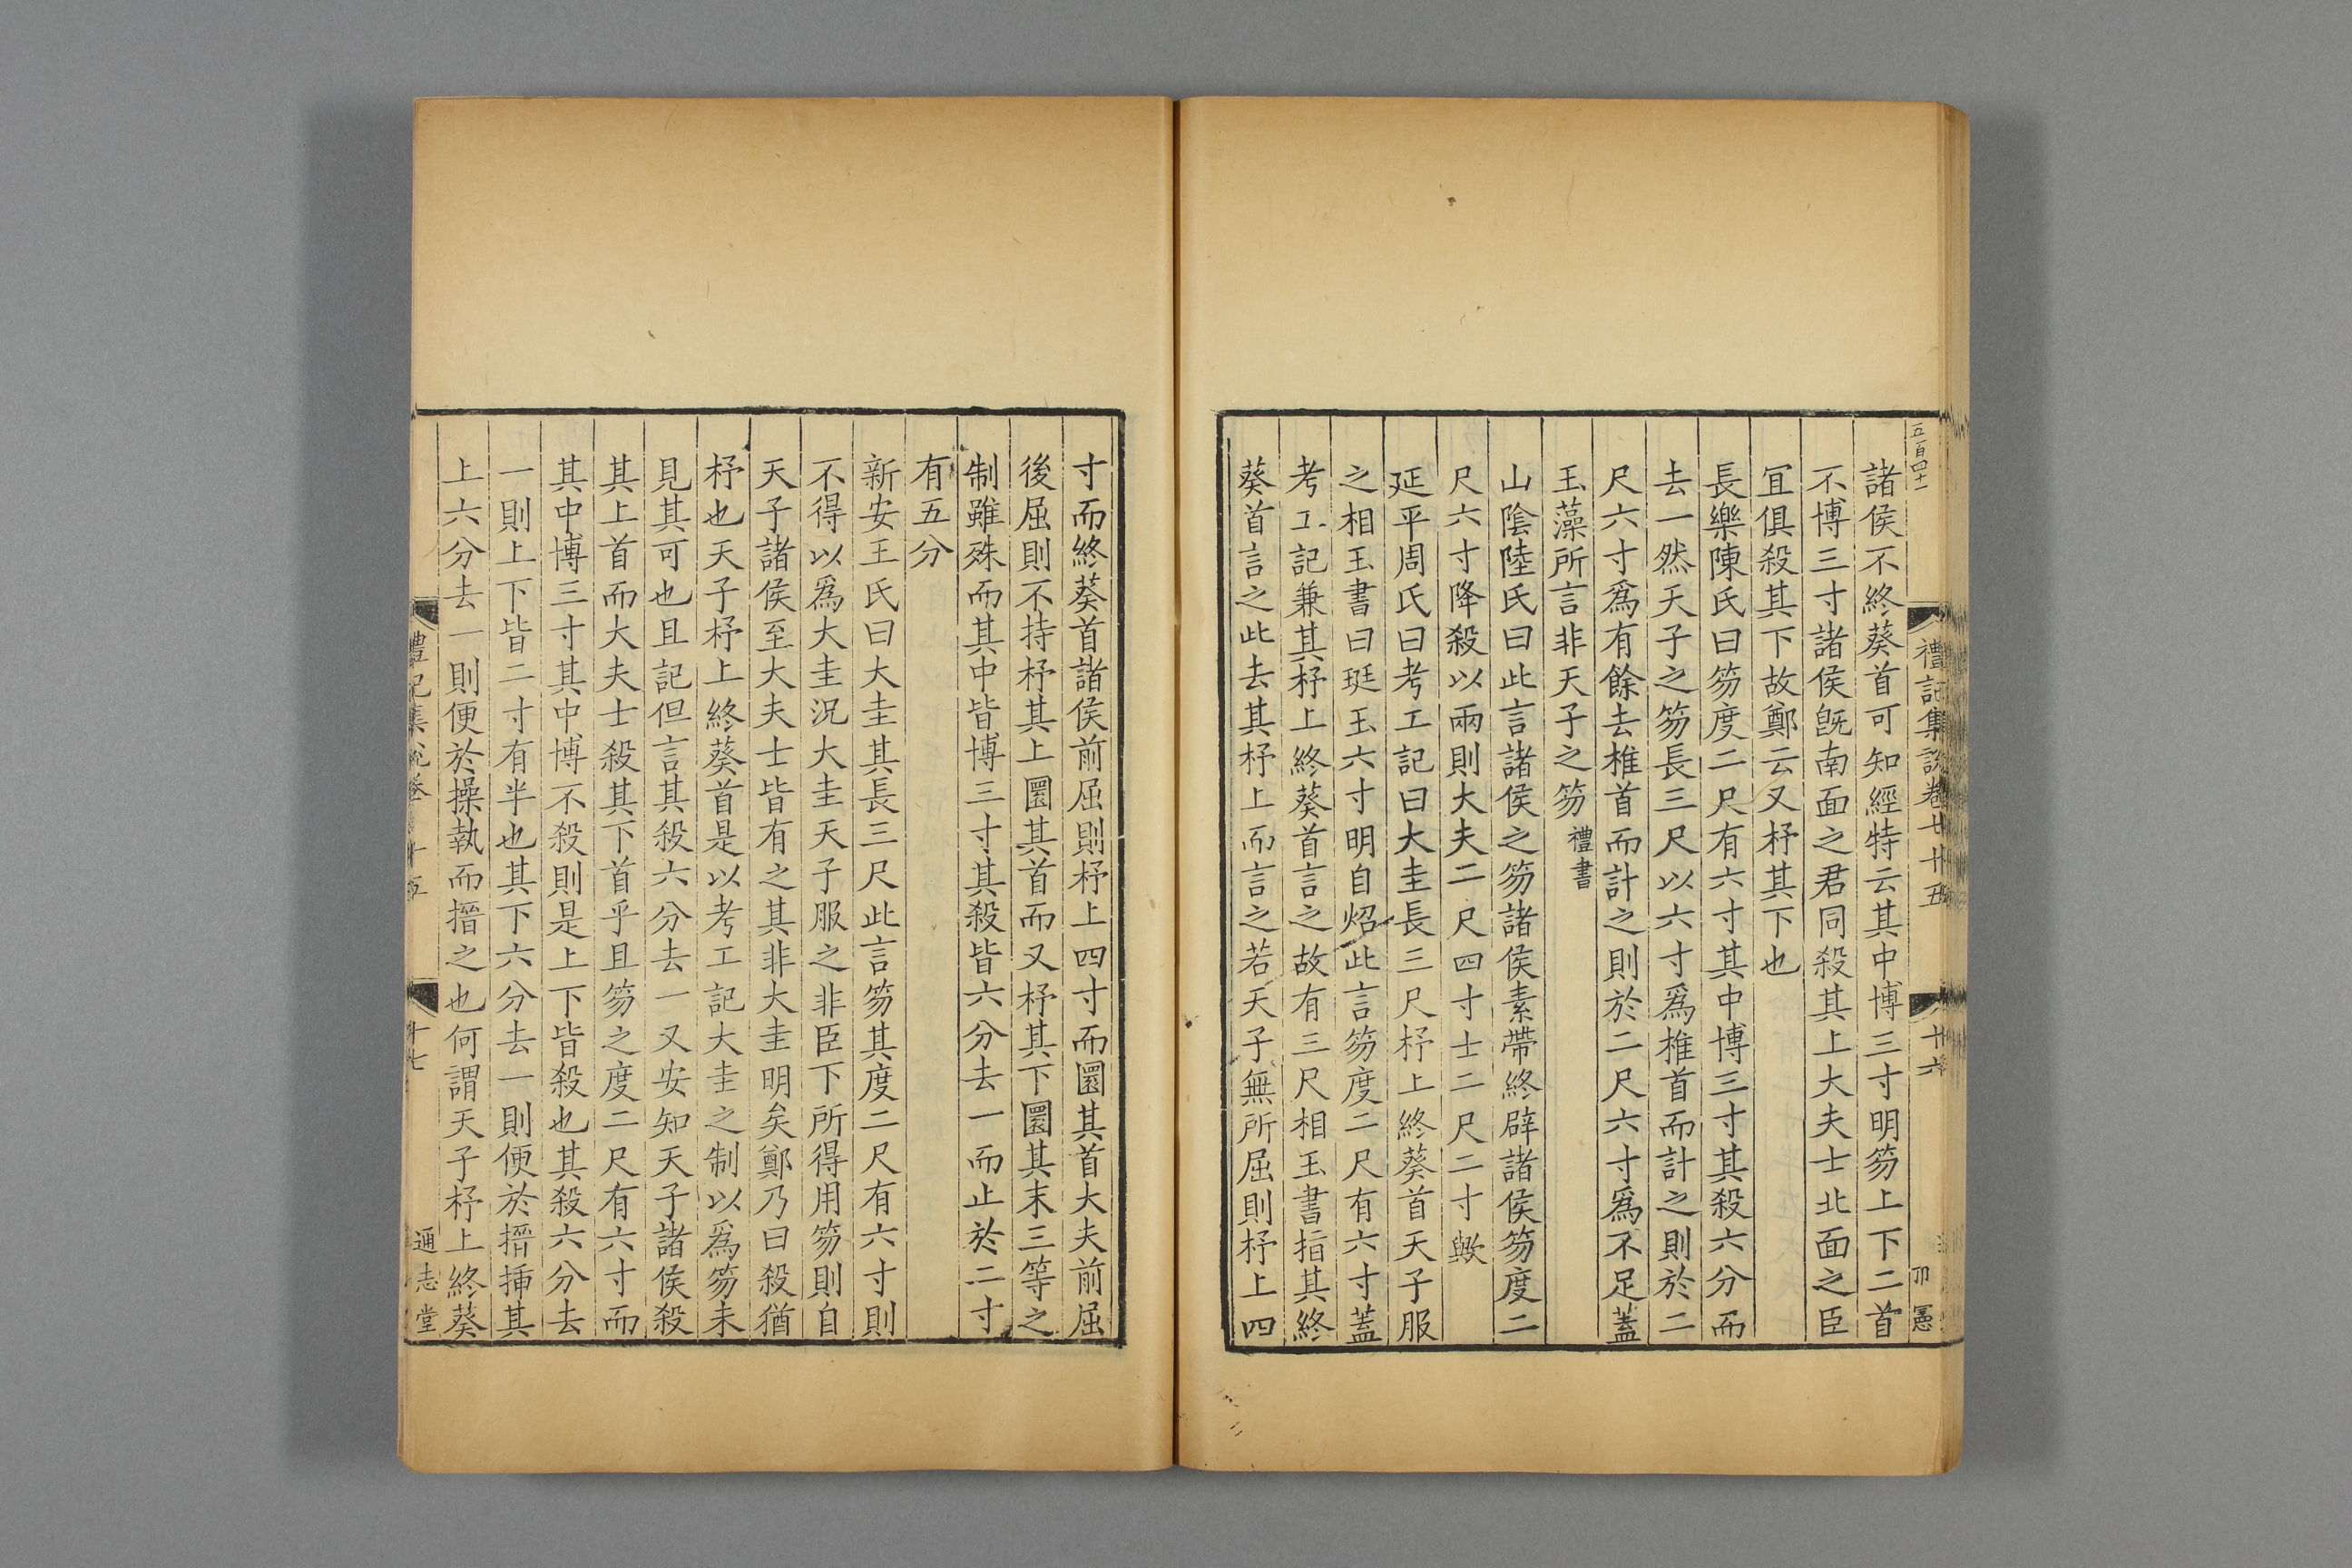 五百四十一
禮記集說卷七十五
十六
諸侯不終葵首可知經特云其中博三寸明笏上下二首
不博三寸諸侯旣南面之君同殺其上大夫士北面之臣
冝俱殺其下故鄭云又杼其下也
長樂陳氏曰笏度二尺有六寸其中博三寸其殺六分而
去一然天子之笏長三尺以六寸爲椎首而計之則於二
尺六寸爲有餘去椎首而計之則於二尺六寸爲不足蓋
玉藻所言非天子之笏禮書
山陰陸氏曰此言諸侯之笏諸侯素帶終辟諸侯笏度二
尺六寸降殺以兩則大夫二尺四寸士二尺二寸歟
延平周氏曰考工記曰大圭長三尺杼上終葵首天子服
之相玉書曰珽玉六寸明自炤此言笏度二尺有六寸蓋
考工記兼其杼上終葵首言之故有三尺相玉書指其終
葵首言之此去其杼上而言之若天子無所屈則杼上四
寸而終葵首諸侯前屈則杼上四寸而圜其首大夫前屈
後屈則不持杼其上圜其首而又杼其下圜其末三等之
制雖殊而其中皆博三寸其殺皆六分去一而止於二寸
有五分
新安王氏曰大圭其長三尺此言笏其度二尺有六寸則
不得以爲大圭況大圭天子服之非臣下所得用笏則自
天子諸侯至大夫士皆有之其非大圭明矣鄭乃曰殺猶
杼也天子杼上終葵首是以考工記大圭之制以爲笏未
見其可也且記但言其殺六分去一又安知天子諸侯殺
其上首而大夫士殺其下首乎且笏之度二尺有六寸而
其中博三寸其中博不殺則是上下皆殺也其殺六分去
一則上下皆二寸有半也其下六分去一則便於搢揷其
上六分去一則便於操執而搢之也何謂天子杼上終葵
十七
通志堂